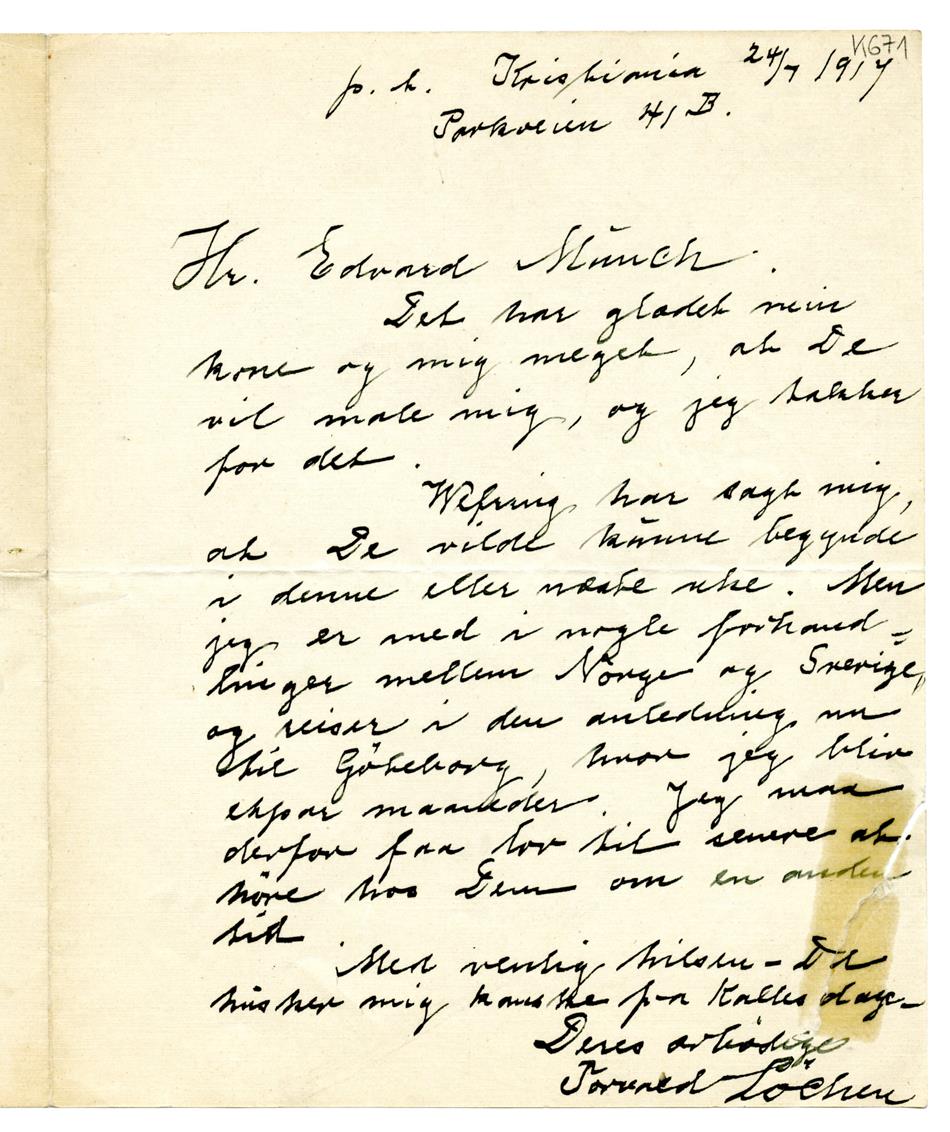 K671
p. t. Kristiania 24/7 1917
Parkveien 41 B.
Hr. Edvard Münch.
Det har glædet min
kone og mig meget, at De
vil male mig, og jeg takker
for det.
Wefring har sagt mig,
at De vilde kunne begynde
i denne eller næste uke. Men
jeg er med i nogle forhand=
linger mellem Norge og Sverige,
og reiser i den anledning nu
til Göteborg, hvor jeg blir
etpar maaneder. Jeg maa
derfor faa lov til senere at
höre hos Dem om en anden
tid.
Med venlig hilsen – De
husker mig kanske fra Kalles dage –
Deres ærbödige
Torvald Löchen